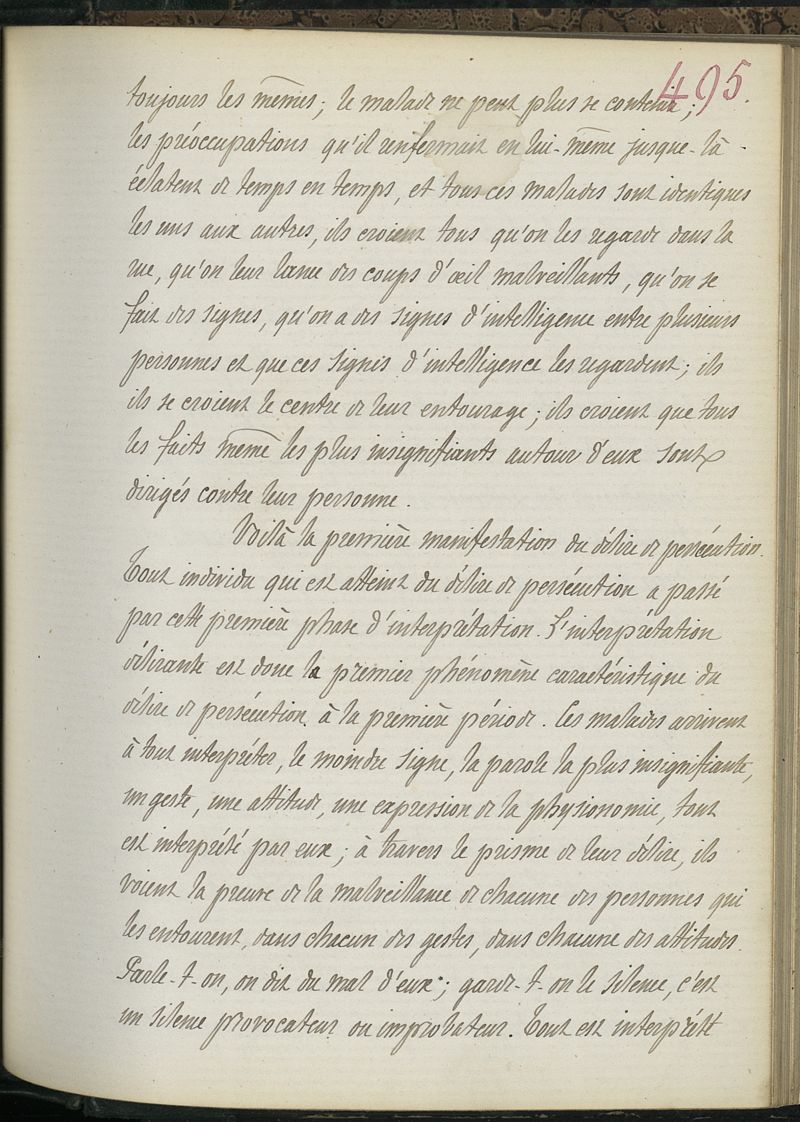 495
toujours les mêmes; le malade ne peut plus se contenir;
les préoccupations qu'il renfermait en lui-même jusque-là
éclatent de temps en temps, et tous ces malades sont identiques
les uns aux autres, ils croient tous qu'on les regarde dans la
rue, qu'on leur lance des coups d'œil malveillants, qu'on se
fait des signes, qu'on a des signes d'intelligence entre plusieurs
personnes et que ces signes d'intelligence les regardent; ils
ils se croient le centre de leur entourage; ils croient que tous
les faits même les plus insignifiants autour d'eux sont
dirigés contre leur personne.
Voilà la première manifestation du délire de persécution.
Tout individu qui est atteint du délire de persécution a passé
par cette première phase d'interprétation. L'interprétation
délirante est donc le premier phénomène caractéristique du
délire de persécution à la première période. Ces malades arrivent
à tout interpréter, le moindre signe, la parole la plus insignifiante,
un geste, une attitude, une expression de la physionomie, tout
est interprété par eux; à travers le prisme de leur délire, ils
voient la preuve de la malveillance de chacune des personnes qui
les entourent, dans chacun des gestes, dans chacune des attitudes.
Parle-t-on, on dit du mal d'eux; garde-t-on le silence, c'est
un silence provocateur ou improbateur. Tout est interprété